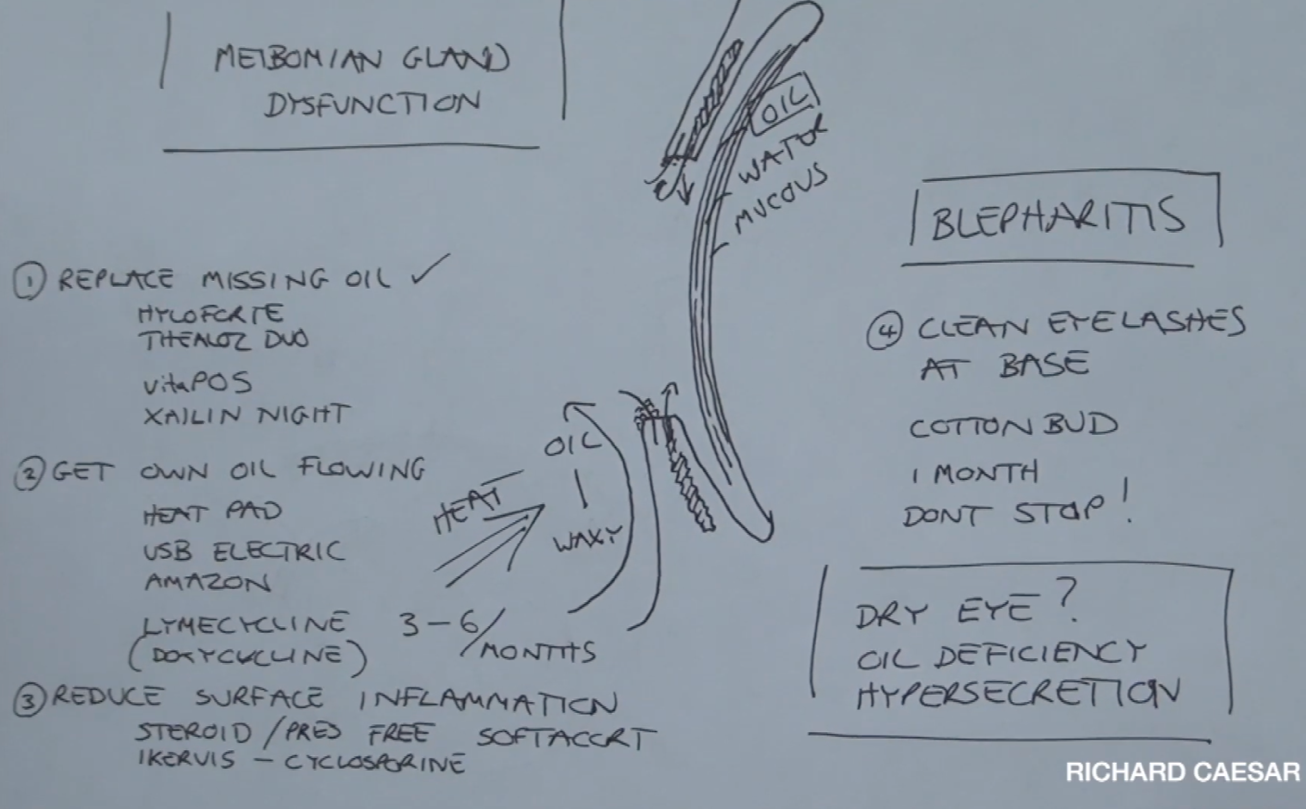 MEIBOMIAN GLAND
DYSFUNCTION
OIL
WATER
MUCOUS
① REPLACE MISSING OIL ✓
HYLOFORTE
THEALOZ DUO
VitaPOS
XAILIN NIGHT
② GET OWN OIL FLOWING
HEAT PAD
USB ELECTRIC
AMAZON
LYMECYCLINE 3-6/MONTHS
(DOXYCYCLINE)
HEAT
OIL
WAXY
③ REDUCE SURFACE INFLAMMATION
STEROID / PRES FREE SOFTACORT
IKERVIS - CYCLOSPORINE
BLEPHARITIS
④ CLEAN EYELASHES
AT BASE
COTTON BUD
1 MONTH
DONT STOP!
DRY EYE?
OIL DEFICIENCY
HYPERSECRETION
RICHARD CAESAR